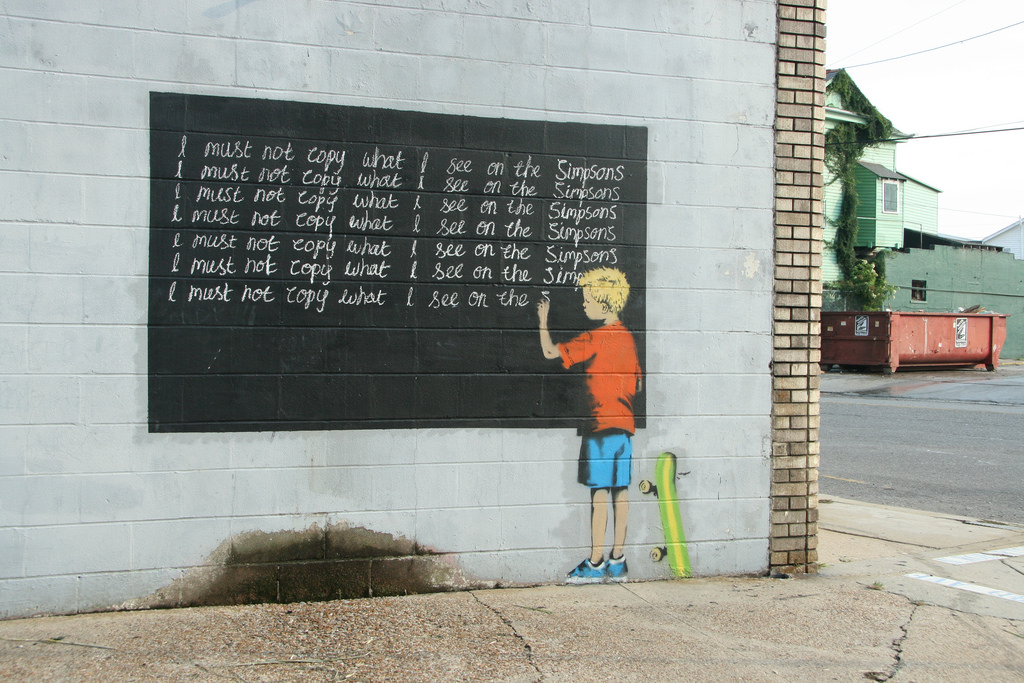 I must not copy what I see on the Simpsons
I must not copy what I see on the Simpsons
I must not copy what I see on the Simpsons
I must not copy what I see on the Simpsons
I must not copy what I see on the Simpsons
I must not copy what I see on the Simp
I must not copy what I see on the S